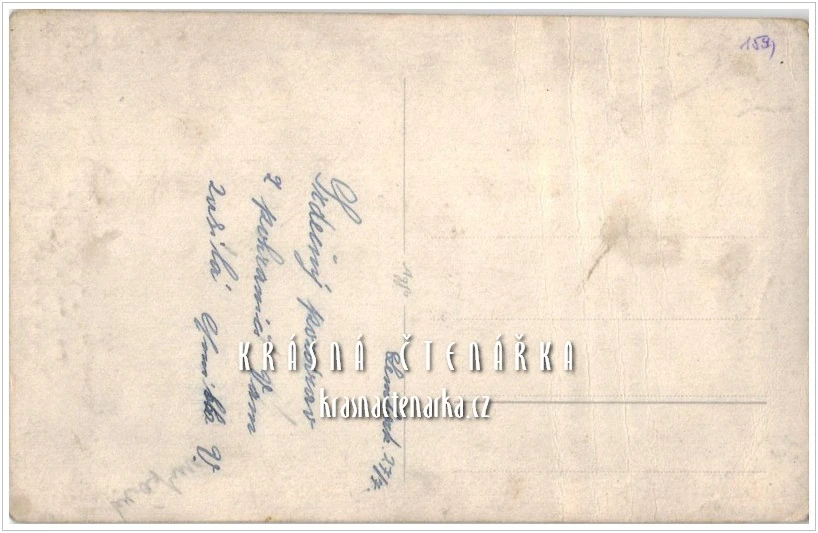 159,
27/7.
Srdečný pozdrav
z pohraničí Vám
zasílá
V.
KRÁSNÁ ČTENÁŘKA
krasnactenarka.cz